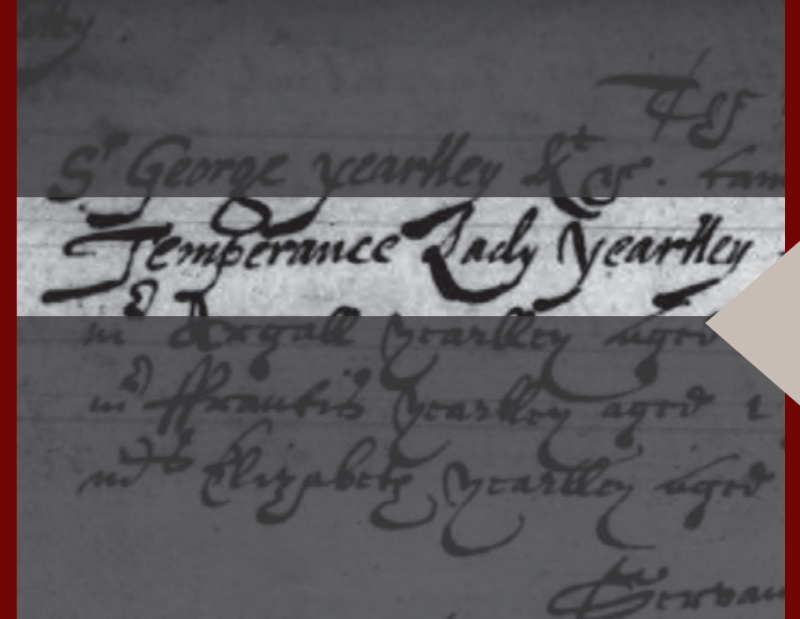 Sr George yearlley Kt &c.
Temperance Lady Yearlley
mr Argall Yearlley aged
mr ffrancis Yearlley aged 1
mrs Elizabeth Yearlley aged
Servan